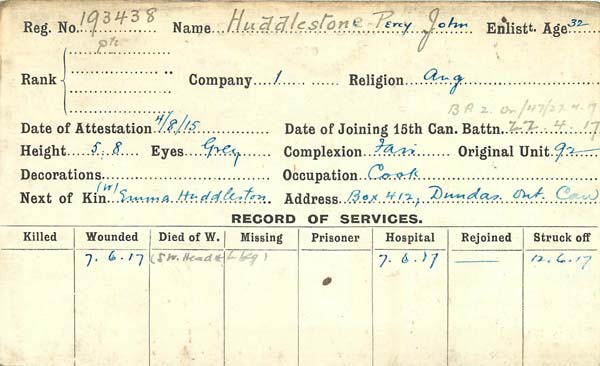 Reg. No. 193438 Name Huddlestone Percy John Enlistt. Age 32
Rank pte
Company 1 Religion Ang
B.R 2. Or/47/27.4.9
Date of Attestation 4/8/15 Date of Joining 15th Can. Battn. 22.4.17
Height 5.8 Eyes Grey Complexion Fair Original Unit 92
Decorations Occupation Cook
Next of Kin (W) Emma Huddleston Address Box 412, Dundas. Ont. Can
RECORD OF SERVICES.
Killed Wounded Died of W. Missing Prisoner Hospital Rejoined Struck off
7.6.17 (SW. Head & L Leg) 7.6.17 — 12.6.17